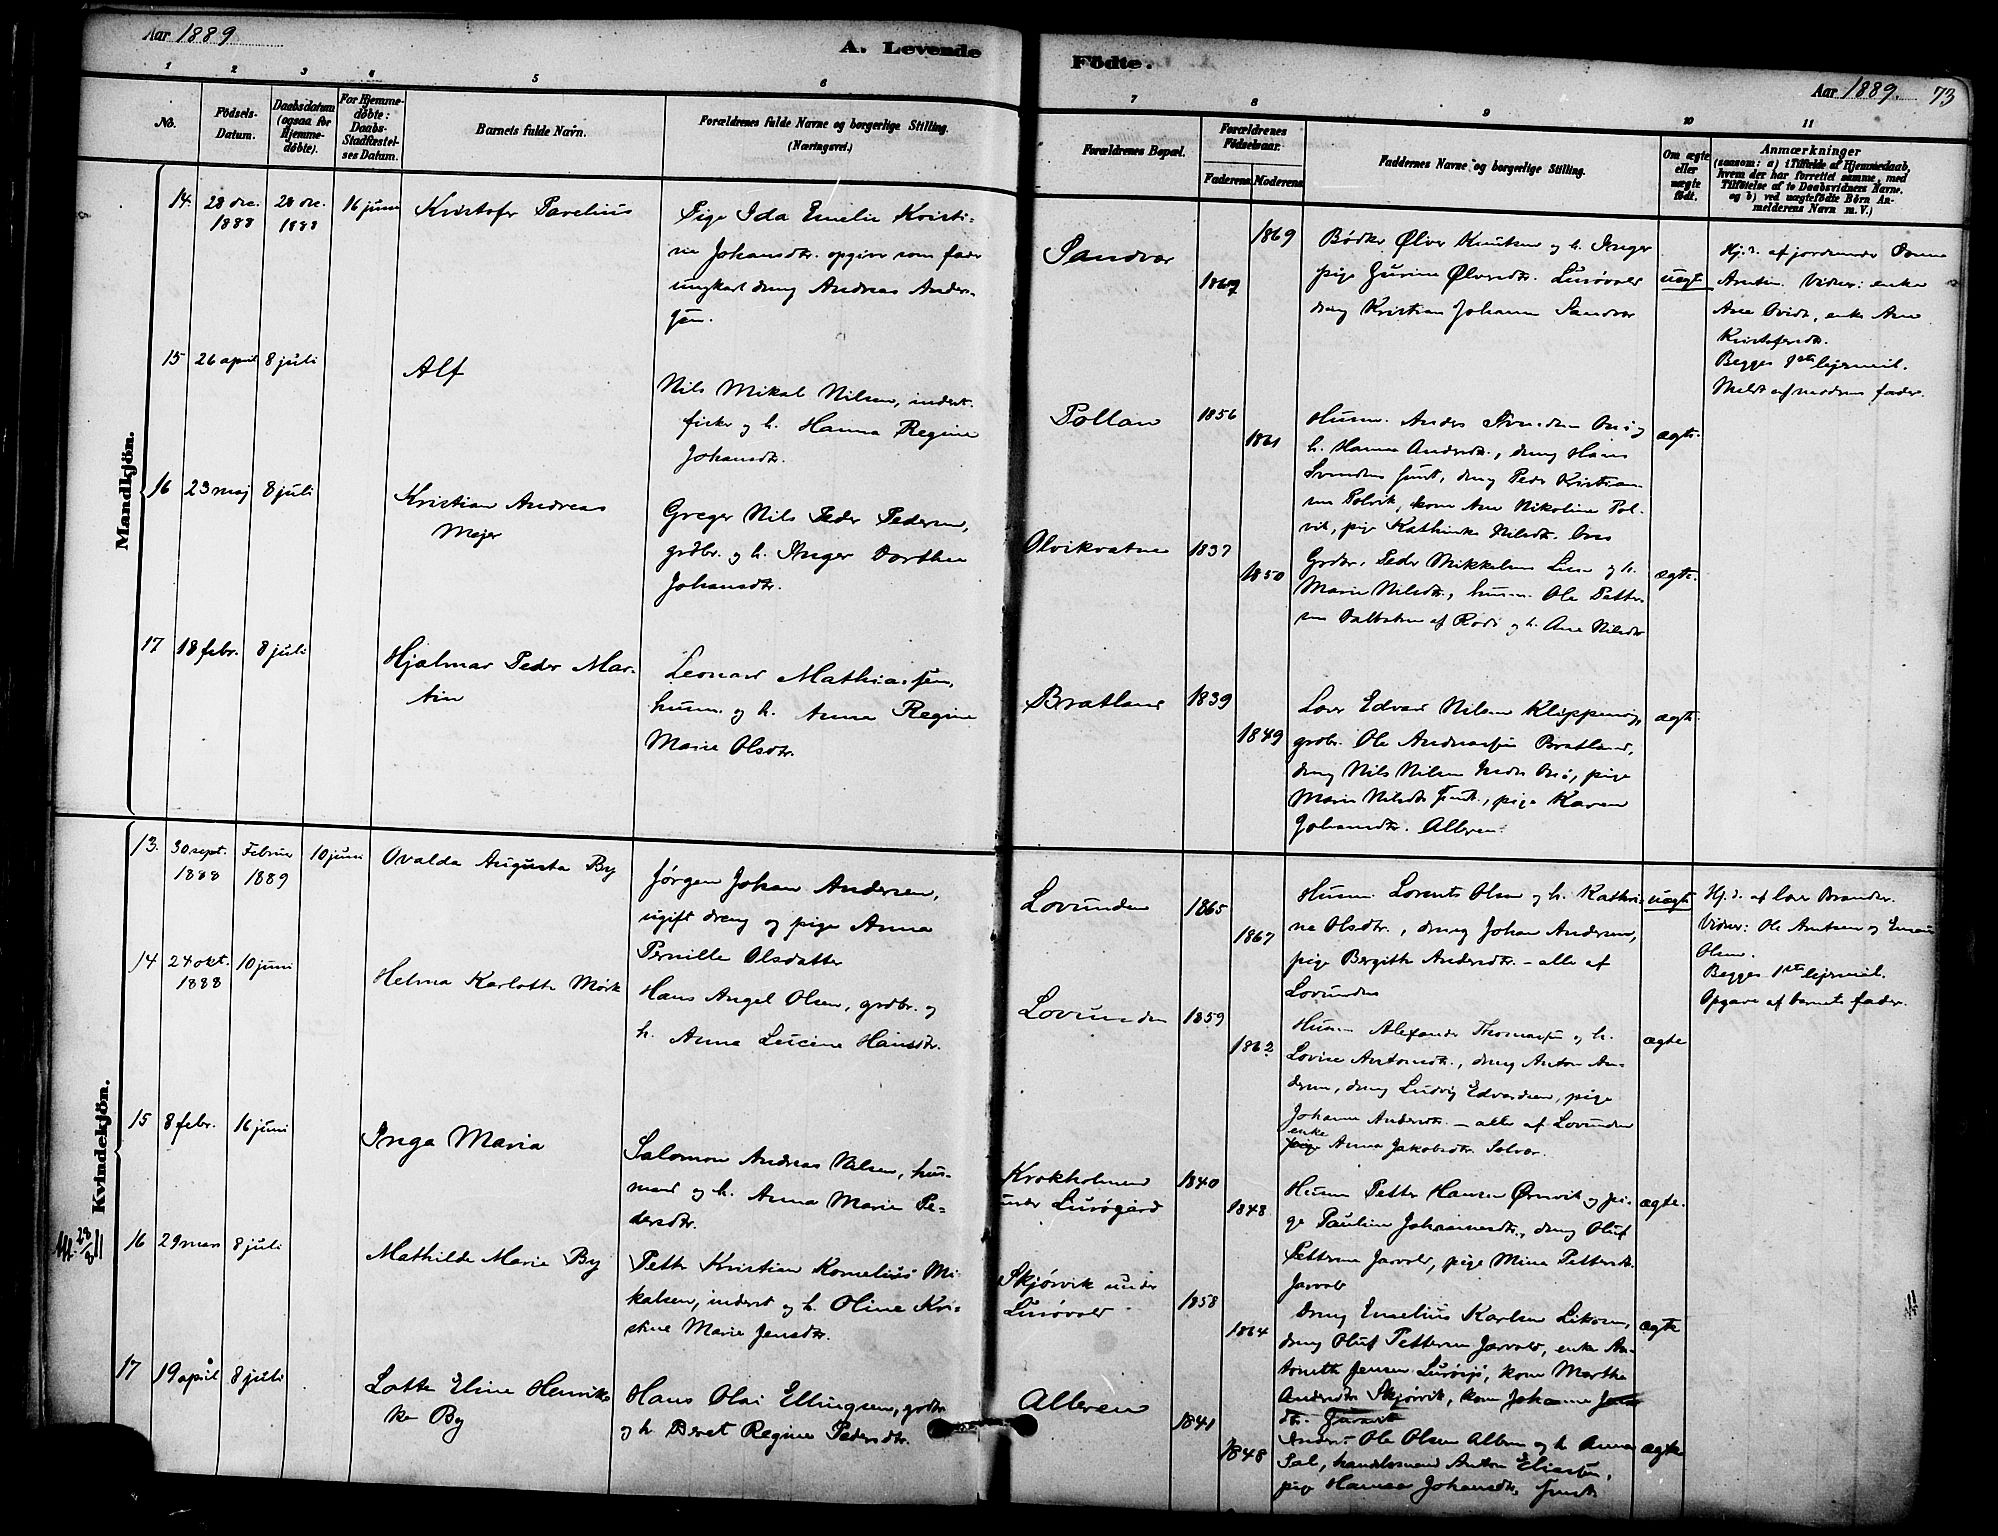 Aar 1889
A. Levende
Födte.
Aar 1889. 73
1 2 3 4 5 6 7 8 9 10 11
No.
Födsels-
Datum.
Daabsdatum
(ogsaa for
Hjemme-
døbte).
For Hjemme-
døbte:
Daabs-
Stadfæstel-
ses Datum.
Barnets fulde Navn.
Forældrenes fulde Navne og borgerlige Stilling.
(Næringsvei.)
Forældrenes Bopæl.
Forældrenes
Födselsaar.
Faderens. Moderens.
Faddernes Navne og borgerlige Stilling.
Om ægte
eller
uægte
født.
Anmærkninger
(saasom: a) i Tilfælde af Hjemmedaab,
hvem der har forrettet samme, med
Tilføielse af to Daabsvidners Navne.
og b) ved uægtefödte Börn An-
melderens Navn m. V.)
Mandkjön.
14. 28 dec. 1888
28 dec. 1888
16 juni
Kristofer Pavelius
Pige Ida Emelie Kristi-
ne Johansdtr. opgiver som fader
ungkarl dreng Andreas Ander-
sen.
Sandvær
1869
1869
Bødker Ølver Knutsen og h. Inger
pige Gurine Ølversdtr. Lurøvær
dreng Kristian Johanss Sandvær
uægt
Hj.d. af jordmoder
Arntsen. Vidner: enke
Ane Ovidt, enke Ane
Kristofersdtr.
Begges 1ste lejermål.
Meldt af moderens fader.
15 26 april 8 juli
Alf
Nils Mikal Nilsen, inderst.
fisker og h. Hanna Regine
Johansdtr.
Pollan
1856
1861
Husm. Anders
h. Hanna Andersdtr., dreng Hans
dreng Peder Kristian-
sen Polvik, kone Ane Nikoline Pol-
vik, pige Kathinka Nilsdtr.
ægte.
16 23 maj 8 juli
Kristian Andreas
Mejer
Greger Nils Peder Pedersen,
grdbr. og h. Inger Dorthea
Johansdtr.
Olvikvatne
1837
1850
Grdbr. Peder Mikkelsen og h.
Marie Nilsdtr., husm. Ole Petter-
sen af Rodø og h. Ane Nilsdtr
ægte.
17 18 febr. 8 juli
Hjalmar Peder Mar-
tin
Leonard Mathiassen,
husm. og h. Anna Regine
Marie Olsdtr.
Bratland
1839
1849
Lærer Edvard Nilsen Klippen
grdbr. Ole Andreassen Bratland,
dreng Nils Nilsen pige
Marie Nilsdtr pige Karen
Johansdtr. Alleren.
ægte.
Kvindekjön.
13. 30 sept. 1888
Februar 1889
10 juni
Ovalda Augusta By
Jørgen Johan Andersen,
ugift dreng og pige Anna
Pernille Olsdatter
Lovunden
1865
1867
Husm. Lorents Olsen og h. Kathri-
ne Olsdtr., dreng Johan Andersen,
pige Bergitte Andersdtr. – alle af
Lovunden
uægt
Hj.d. af lærer Brander.
Vidner: Ole Arntsen og
Olsen.
Begges 1ste lejermål.
Opgave af barnets fader.
14 24 okt. 1888
10 juni
Helma Karlotte Mørk
Hans Angel Olsen, grdbr. og
h. Anna Lucine Hansdtr.
Lovunden
1859
1862
Husm Alexander Thomassen og h.
Lovise Antonsdtr., dreng Anton An-
dersen, dreng Ludvig Edvardsen, pige
Johanna Andersdtr. – alle af Lovunden
enke
pige Anna Jakobsdtr. Selvær.
ægte
15 8 febr. 16 juni
Inga Maria
Salomon Andreas Nilsen, hus-
mand og h. Anna Marie Pe-
dersdtr.
Krokholmen
under Lurøgård
1840
1848
Husm Petter Hansen Ørnvik og pi-
ge Pauline Johannesdtr., dreng Oluf
Pettersen pige Mina Pettersdtr.
ægte.
16 29 mars 8 juli
Mathilde Marie By
Petter Kristian Kornelius Mi-
kalsen, inderst og h. Oline Kri-
stine Marie Jensdtr.
Skjørvik under
Lurøvær
1858
1864
Dreng Karlsen
dreng Oluf Pettersen enke An-
Jensen kone Marthe
Andersdtr. Skjørvik, kone Johanna
ægte
17 19 april 8 juli
Lotte Eline Henrik-
ke By
Hans Olai Ellingsen, grdbr
og h. Beret Regine Pedersdtr.
Alleren
1841
1848
Ole Olsen og h. Anne
handelsmand Anton Eliassen,
pige Hanna Johansdtr.
ægte